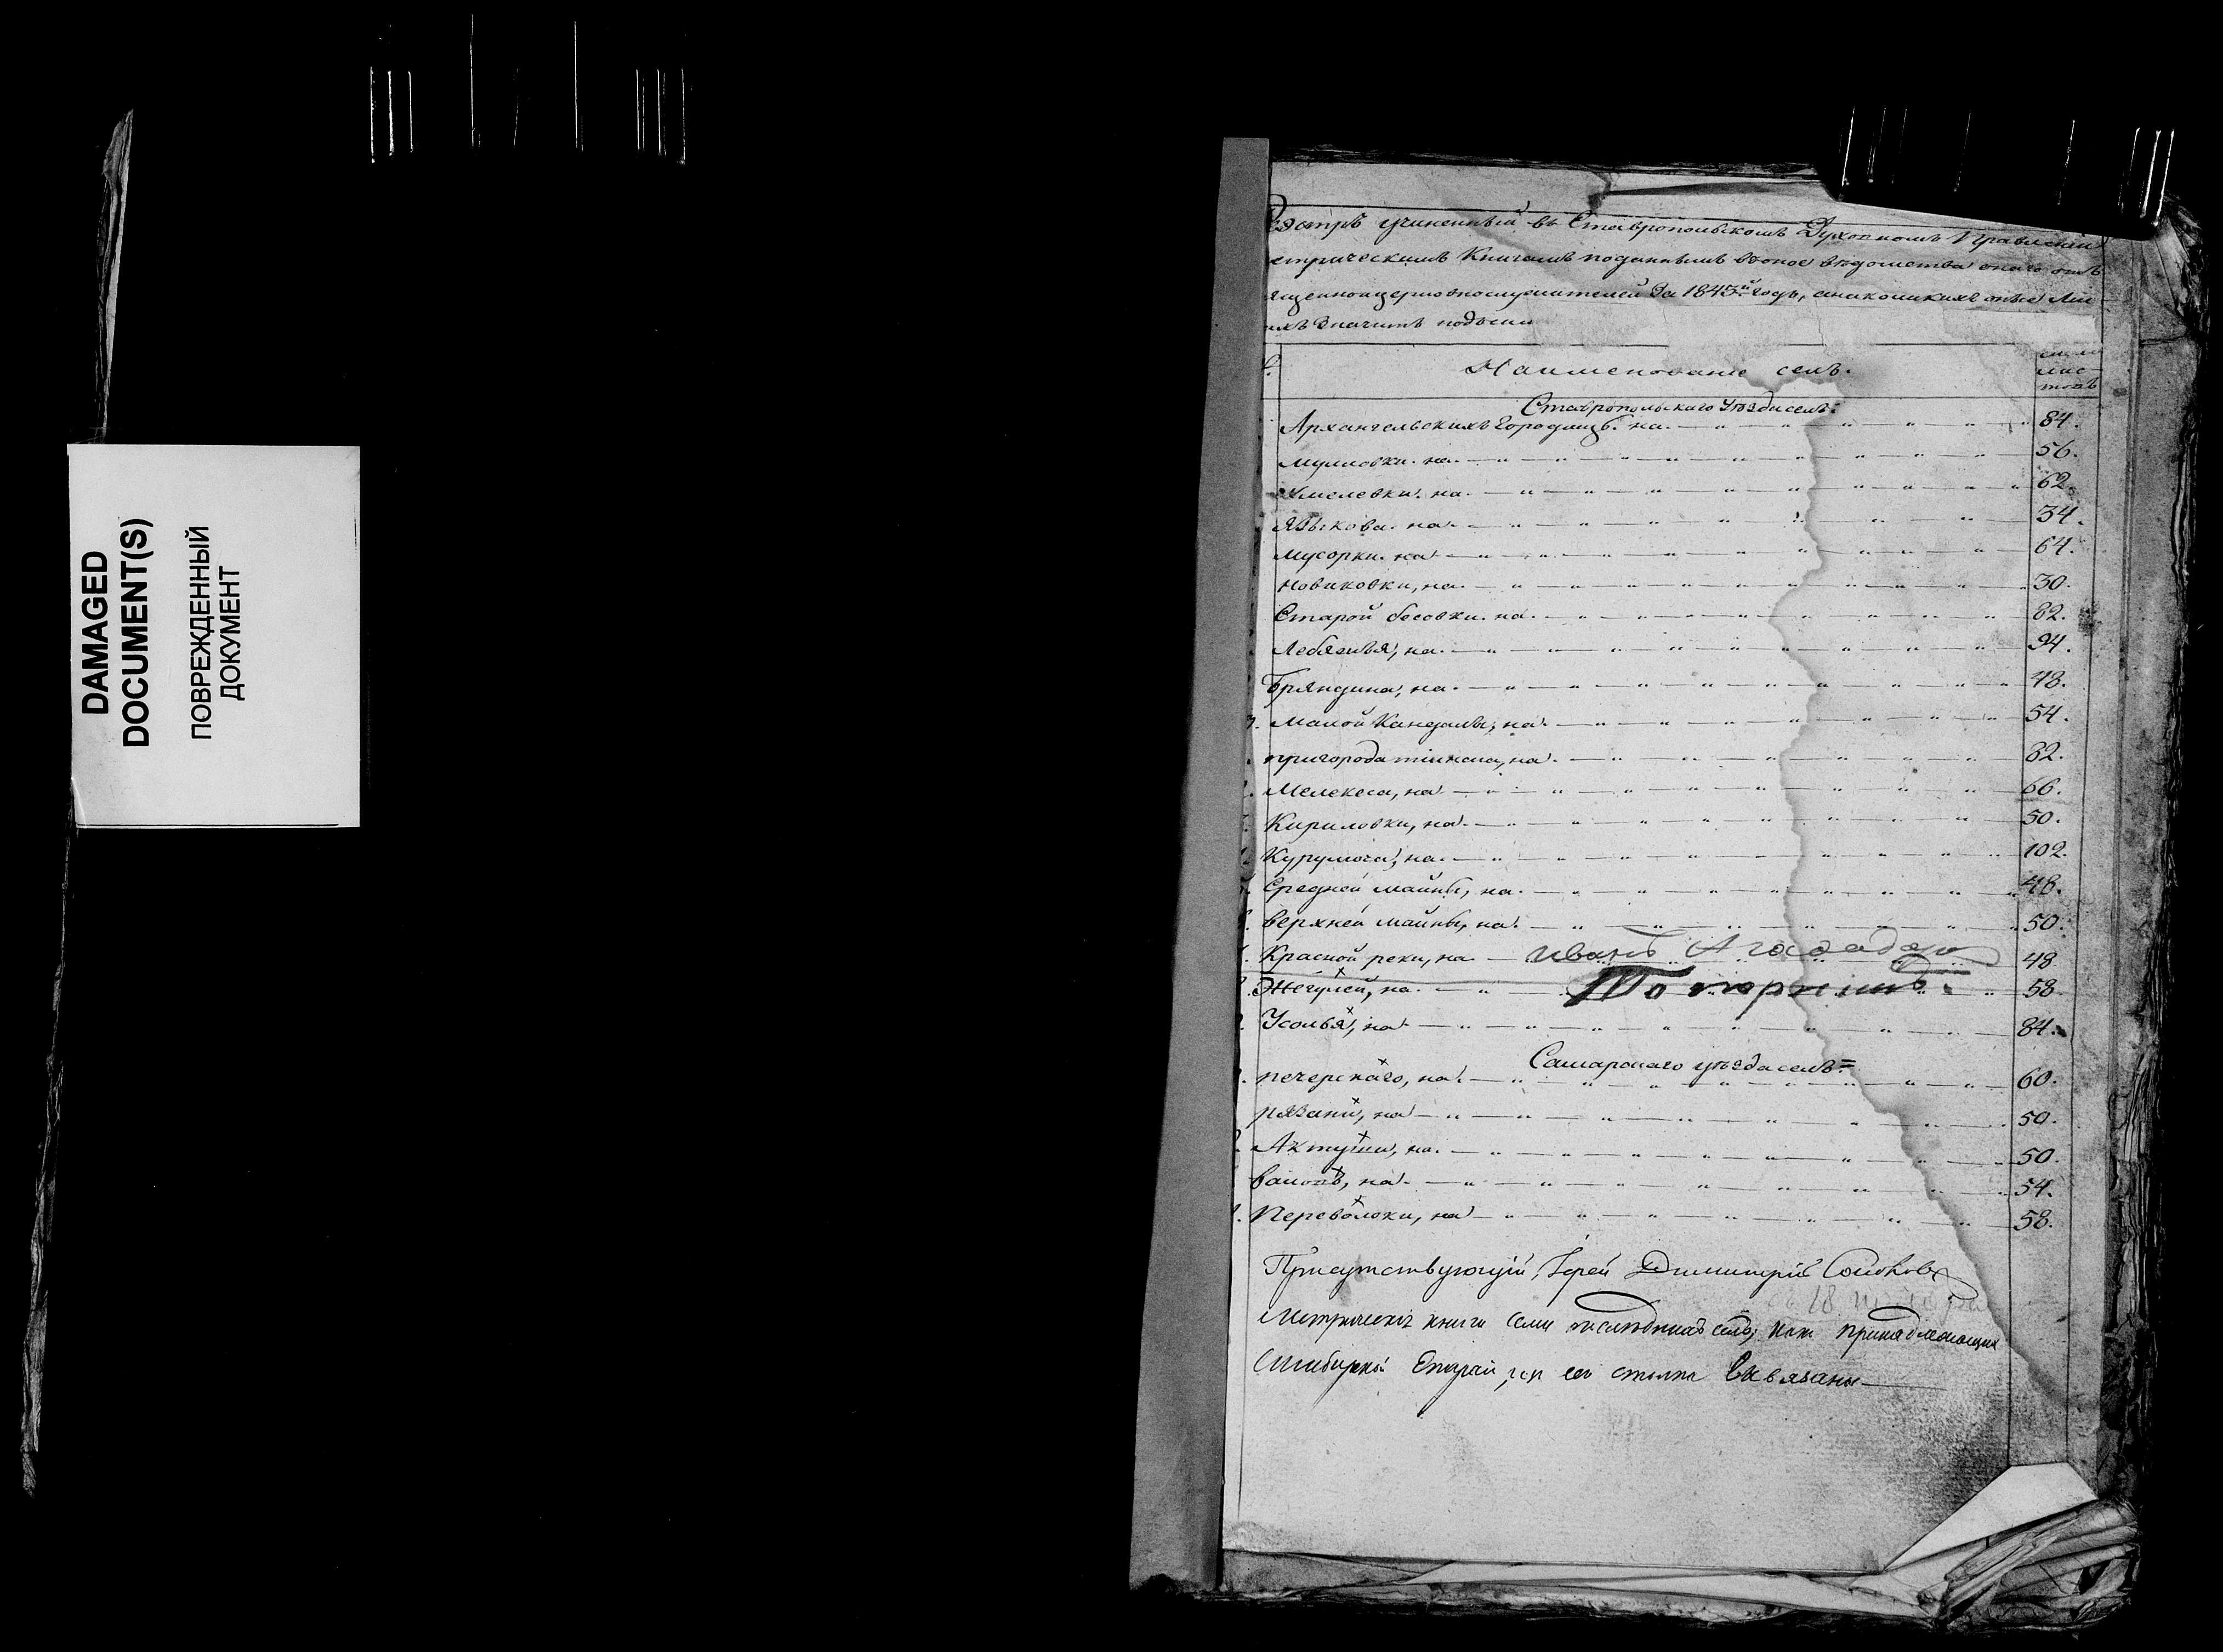 DAMAGED
DOCUMENT(S)
ПОВРЕЖДЕННЫЙ
ДОКУМЕНТ
еэстръ учиненный въ Ставропольскомъ Духовномъ Правленіи
етрическимъ Книгамъ поданнымъ въоное вѣдомства онаго отъ
ященноцерковнослужителей За 1843й годъ, анаколикихъ оныя Ли
ихъ Значитъ подъсим
Наименованіе селъ.
число
лис-
товъ
Ставропольскаго Уѣзда селъ:
Архангельскихъ Городищъ. на. 84.
мулловки. на. 56.
хмелевки. на. 62.
Языкова. на. 34.
мусорки. на 64.
новиковки, на. 30.
Старой бесовки. на. 82.
Лебяжья, на. 94.
Бряндина, на. 48.
малой Кандалы, на. 54.
пригорода тіинска, на. 82.
Мелекеса, на 66.
Кириловки, на. 50.
Курумоча, на. 102.
Средней майны, на. 48.
верхней майны, на. 50.
Красной реки, на 48
иванъ
Жегулей, на. 58
Усолья, на 84.
Самарскаго уѣзда селъ=
печерскаго, на. 60.
рязани, на 50.
Актуши, на. 50.
валовъ, на. 54.
Переволоки, на 58.
Присутствующій, Іерей Димитрій Соловьев
Метрическіе книги семи послѣднихъ селъ, как принадлежащих
Симбирской Епархіи, из сего вывязаны